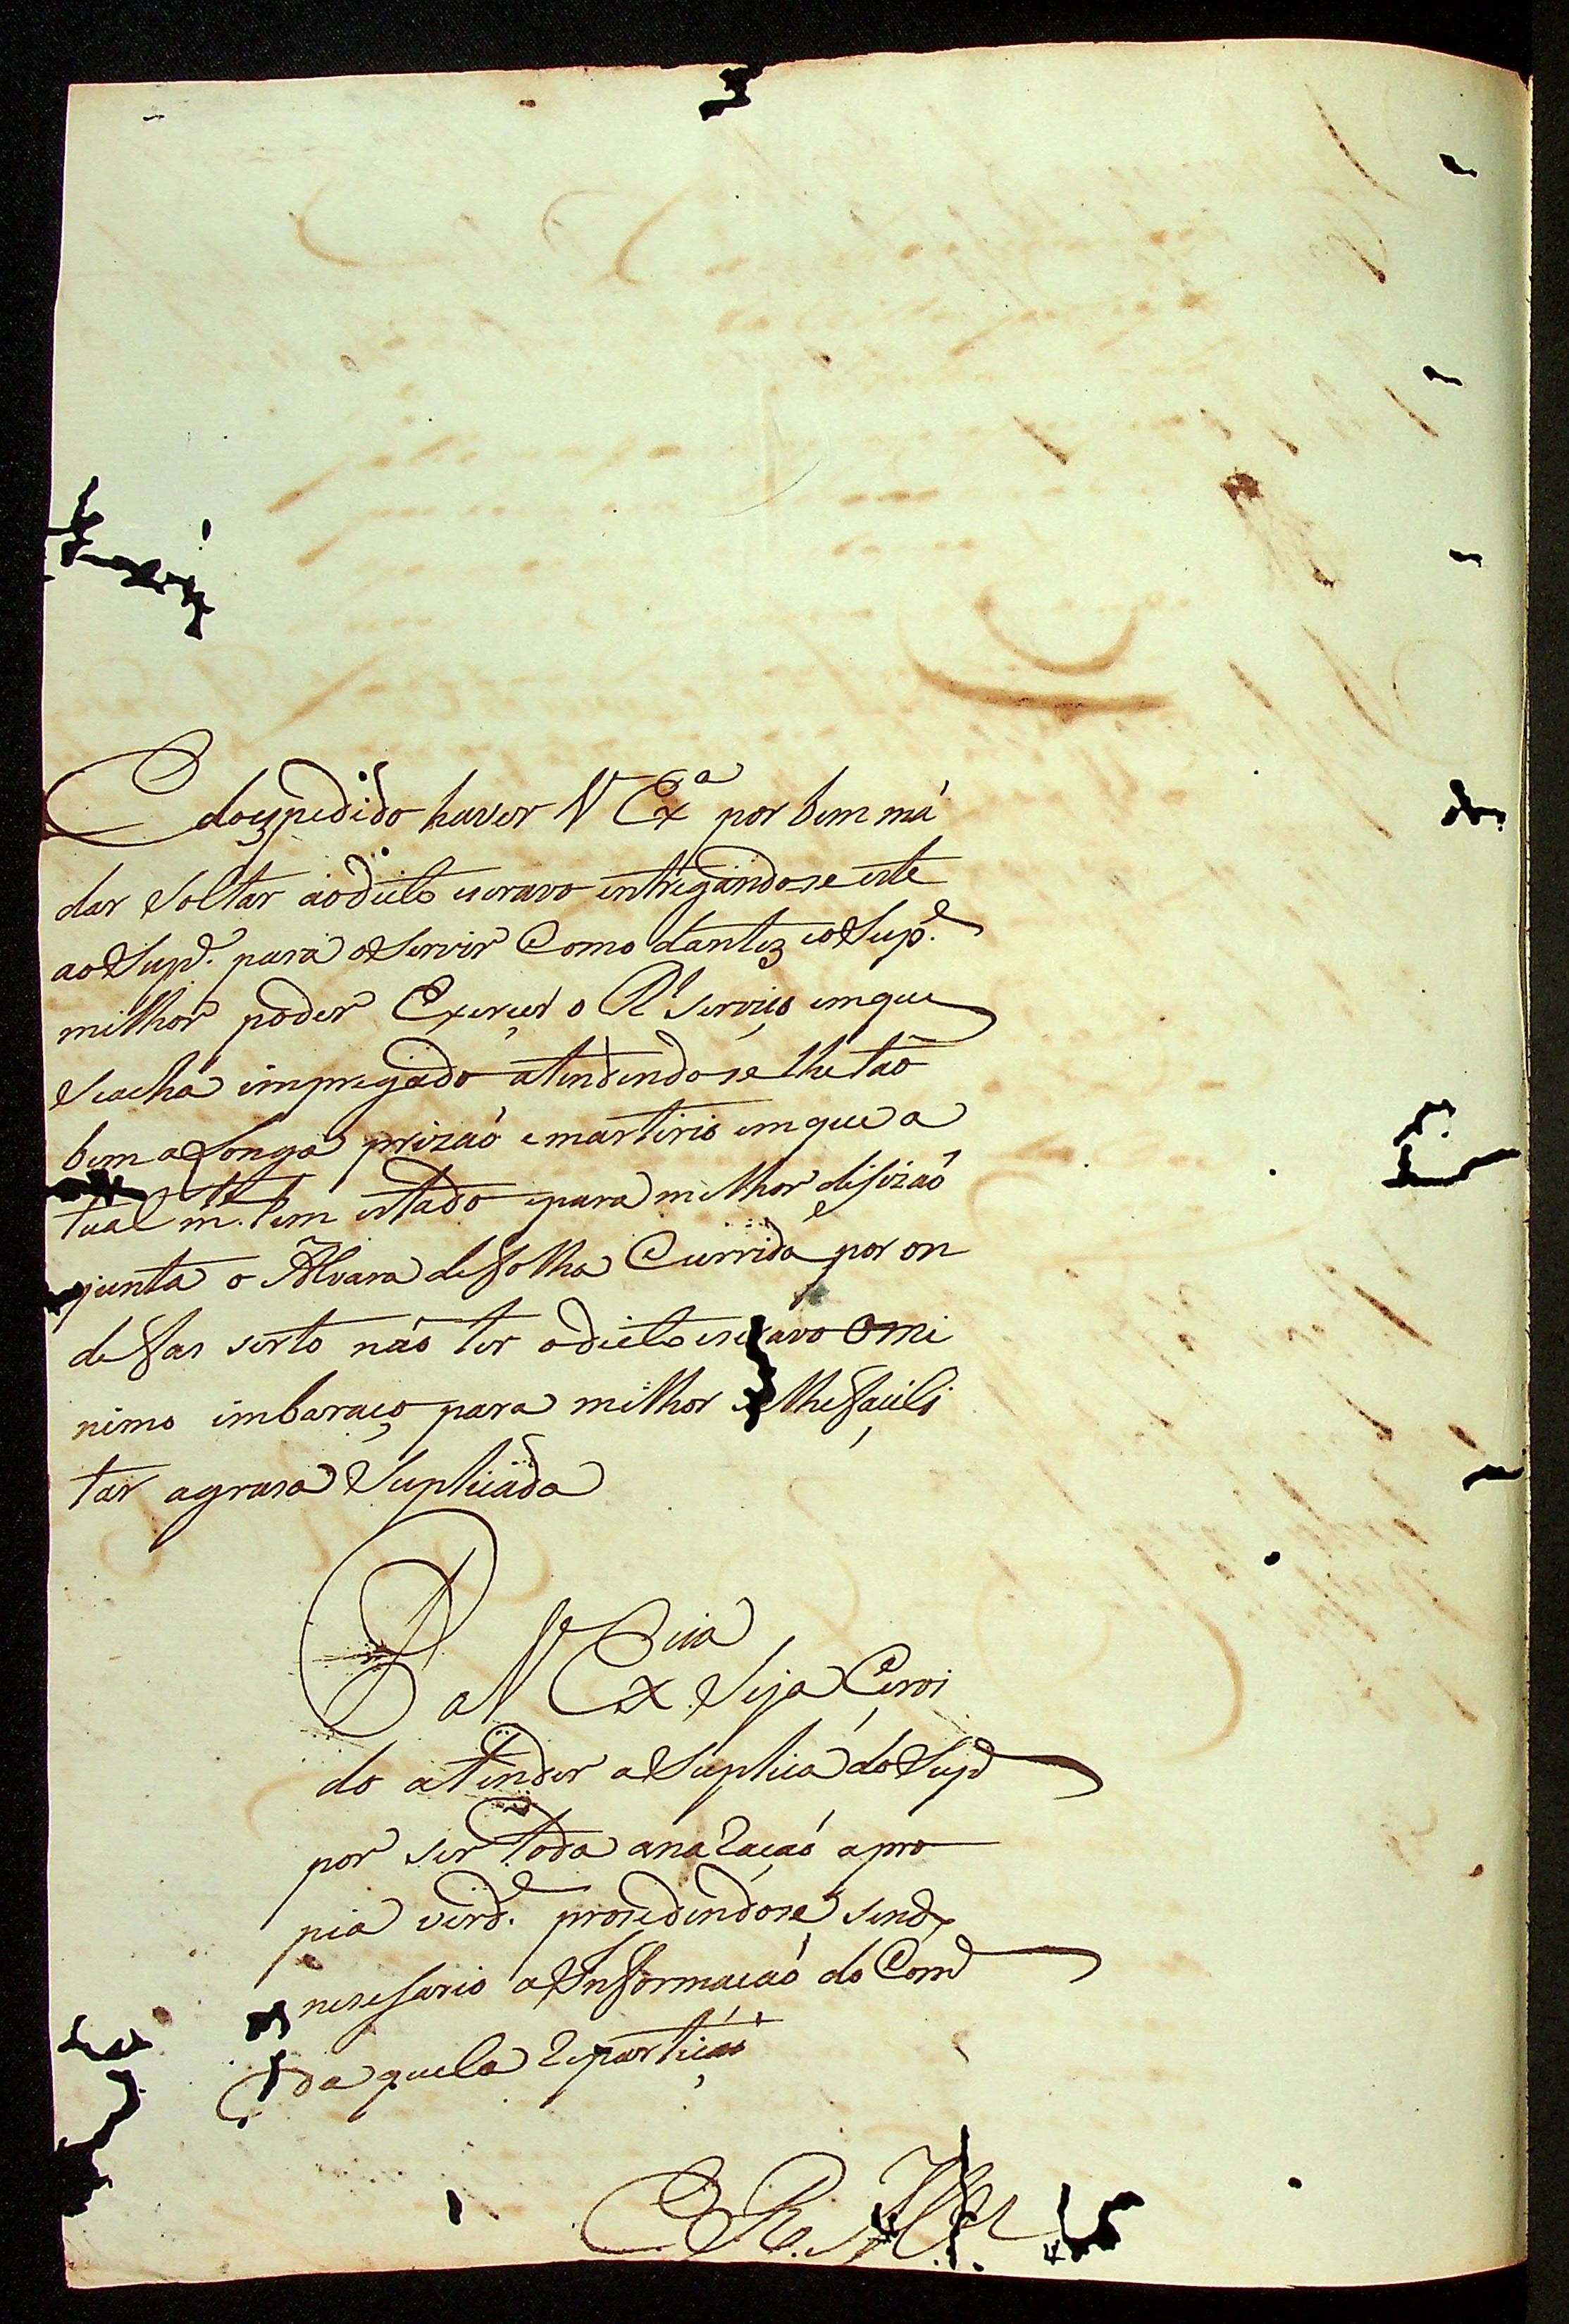 E dospedido haver V Ex.ª por bem má
dar Soltar aodicto escravo entregandose este
ao Sup.e para o Servir Como dantes e o Sup.e
milhor poder Exerçer o R.l serviço emque
Seacha impregado atendendo-se lhe tão
bem a Longa prizaó e martirio em que a
tual m.te tem estado e para milhor desizaó
junta o Alvara de folha Currida por on
de fas serto náo ter o dicto escravo O mi
nimo imbaraço para milhor se lhe façili
tar a grasa Suplicada
P a V Ex.cia Seja Çervi
do atender a Suplica do Sup.e
por ser toda anaraçaó a pro
pia verd.e prosedendose sendo
nesesario a Informacaó do Com.e
da quela repartiçaó
E R. M.ce